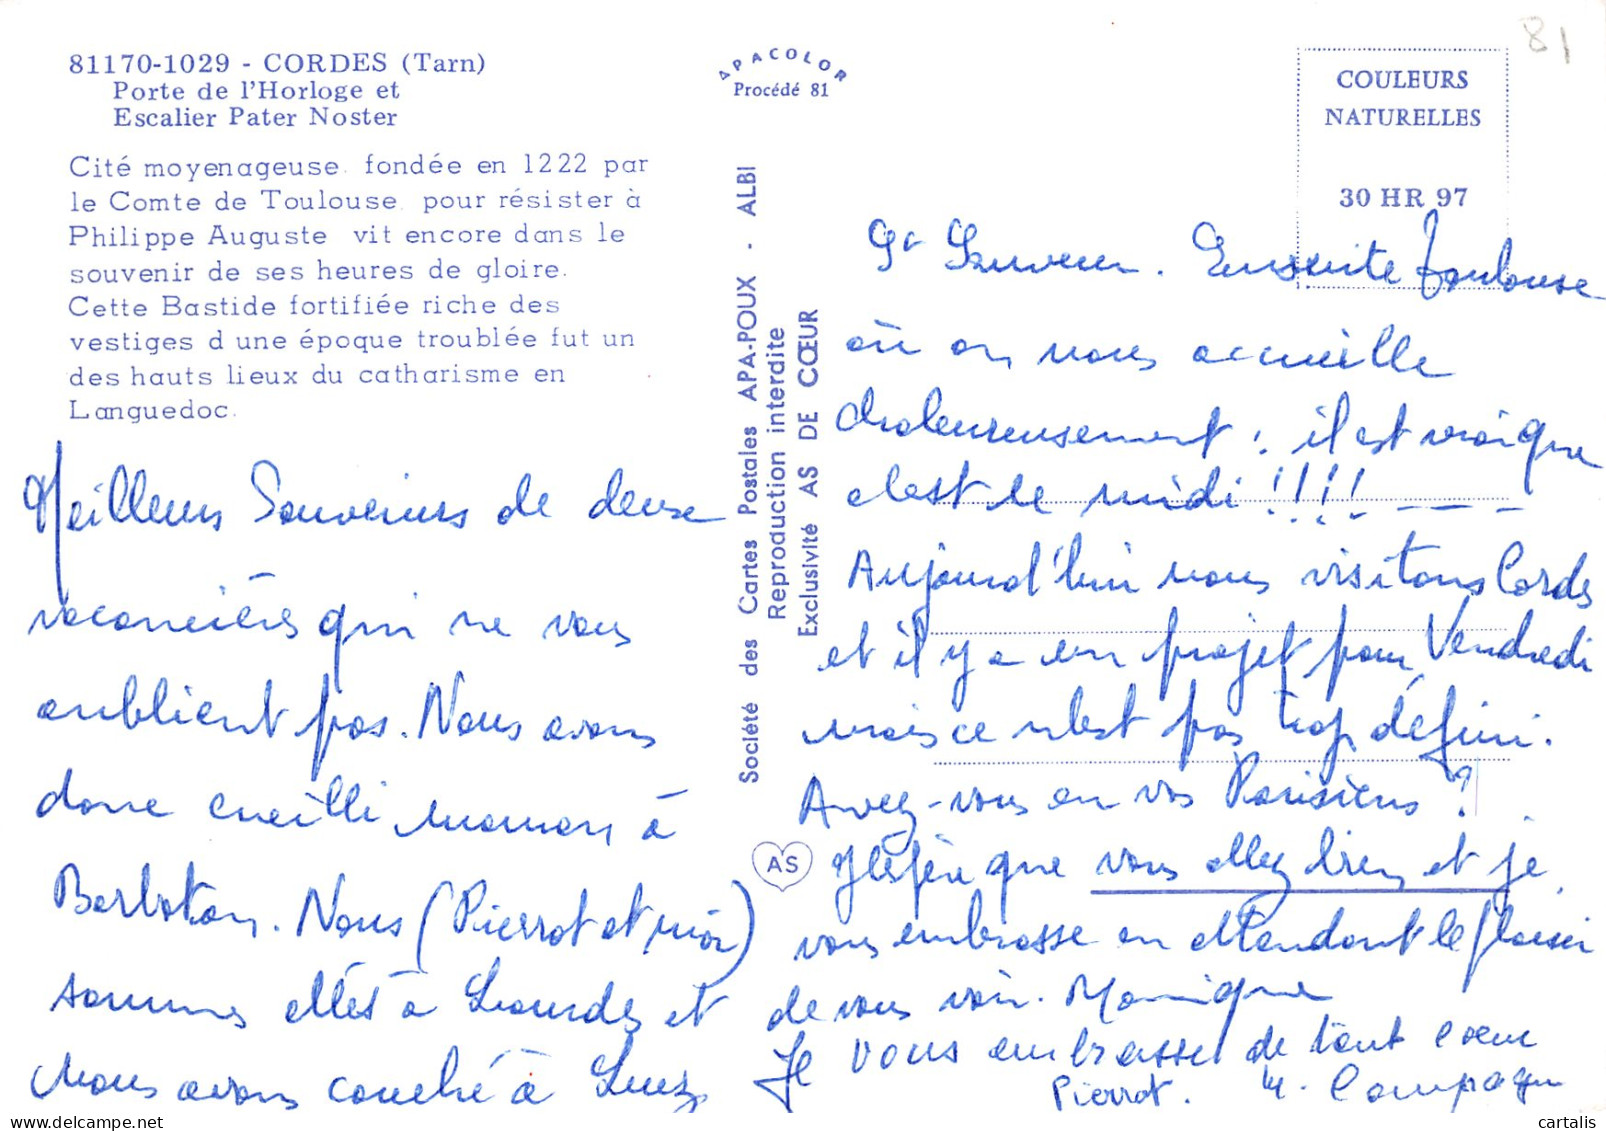 81170-1029 - CORDES (Tarn)
Porte de l'Horloge et
Escalier Pater Noster
Cité moyenageuse fondée en 1222 par
le Comte de Toulouse pour résister à
Philippe Auguste vit encore dans le
souvenir de ses heures de gloire.
Cette Bastide fortifiée riche des
vestiges d une époque troublée fut un
des hauts lieux du catharisme en
Languedoc.
Meilleurs Souvenirs de deux
vacancières qui ne vous
oublient pas. Nous avons
donc cueilli maman à
Barbotan. Nous (Pierrot et moi)
sommes allés à Lourdes et
nous avons couché à Luz
APACOLOR
Procédé 81
Société des Cartes Postales APA-POUX - ALBI
Reproduction interdite
Exclusivité AS DE CŒUR
AS
81
COULEURS
NATURELLES
30 HR 97
St Sauveur. Ensuite Toulouse
où on nous accueille
chaleureusement : il est vrai que
c'est le midi !!!! - - -
Aujourd'hui nous visitons Cordes
et il y a un projet pour Vendredi
mais ce n'est pas trop défini.
Avez-vous eu vos Parisiens ?
J'espère que vous allez bien et je
vous embrasse en attendant le plaisir
de vous voir. Monique
Je vous embrasse de tout coeur
Pierrot. M. Compagn
cartalis